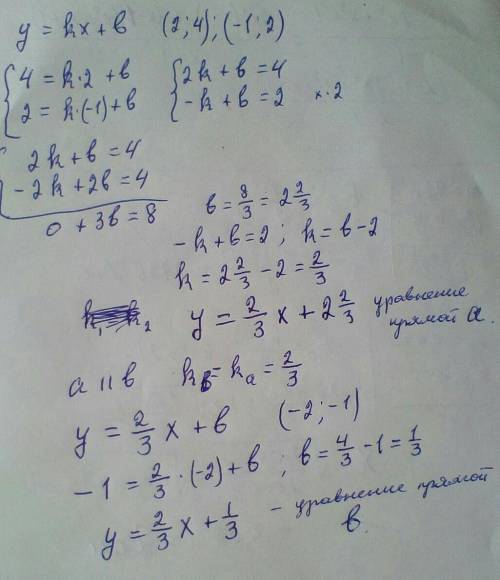 y = kx + b (2; 4); (-1; 2)
{ 4 = k·2 + b { 2k + b = 4
{ 2 = k·(-1) + b { -k + b = 2 ×·2
{ 2k + b = 4
{ -2k + 2b = 4
0 + 3b = 8
b = 8/3 = 2 2/3
-k + b = 2 ; k = b - 2
k = 2 2/3 - 2 = 2/3
y = 2/3 x + 2 2/3 уравнение прямой a.
a || b k_b = k_a = 2/3
y = 2/3 x + b (-2; -1)
-1 = 2/3 ·(-2) + b ; b = 4/3 - 1 = 1/3
y = 2/3 x + 1/3 - уравнение прямой b.